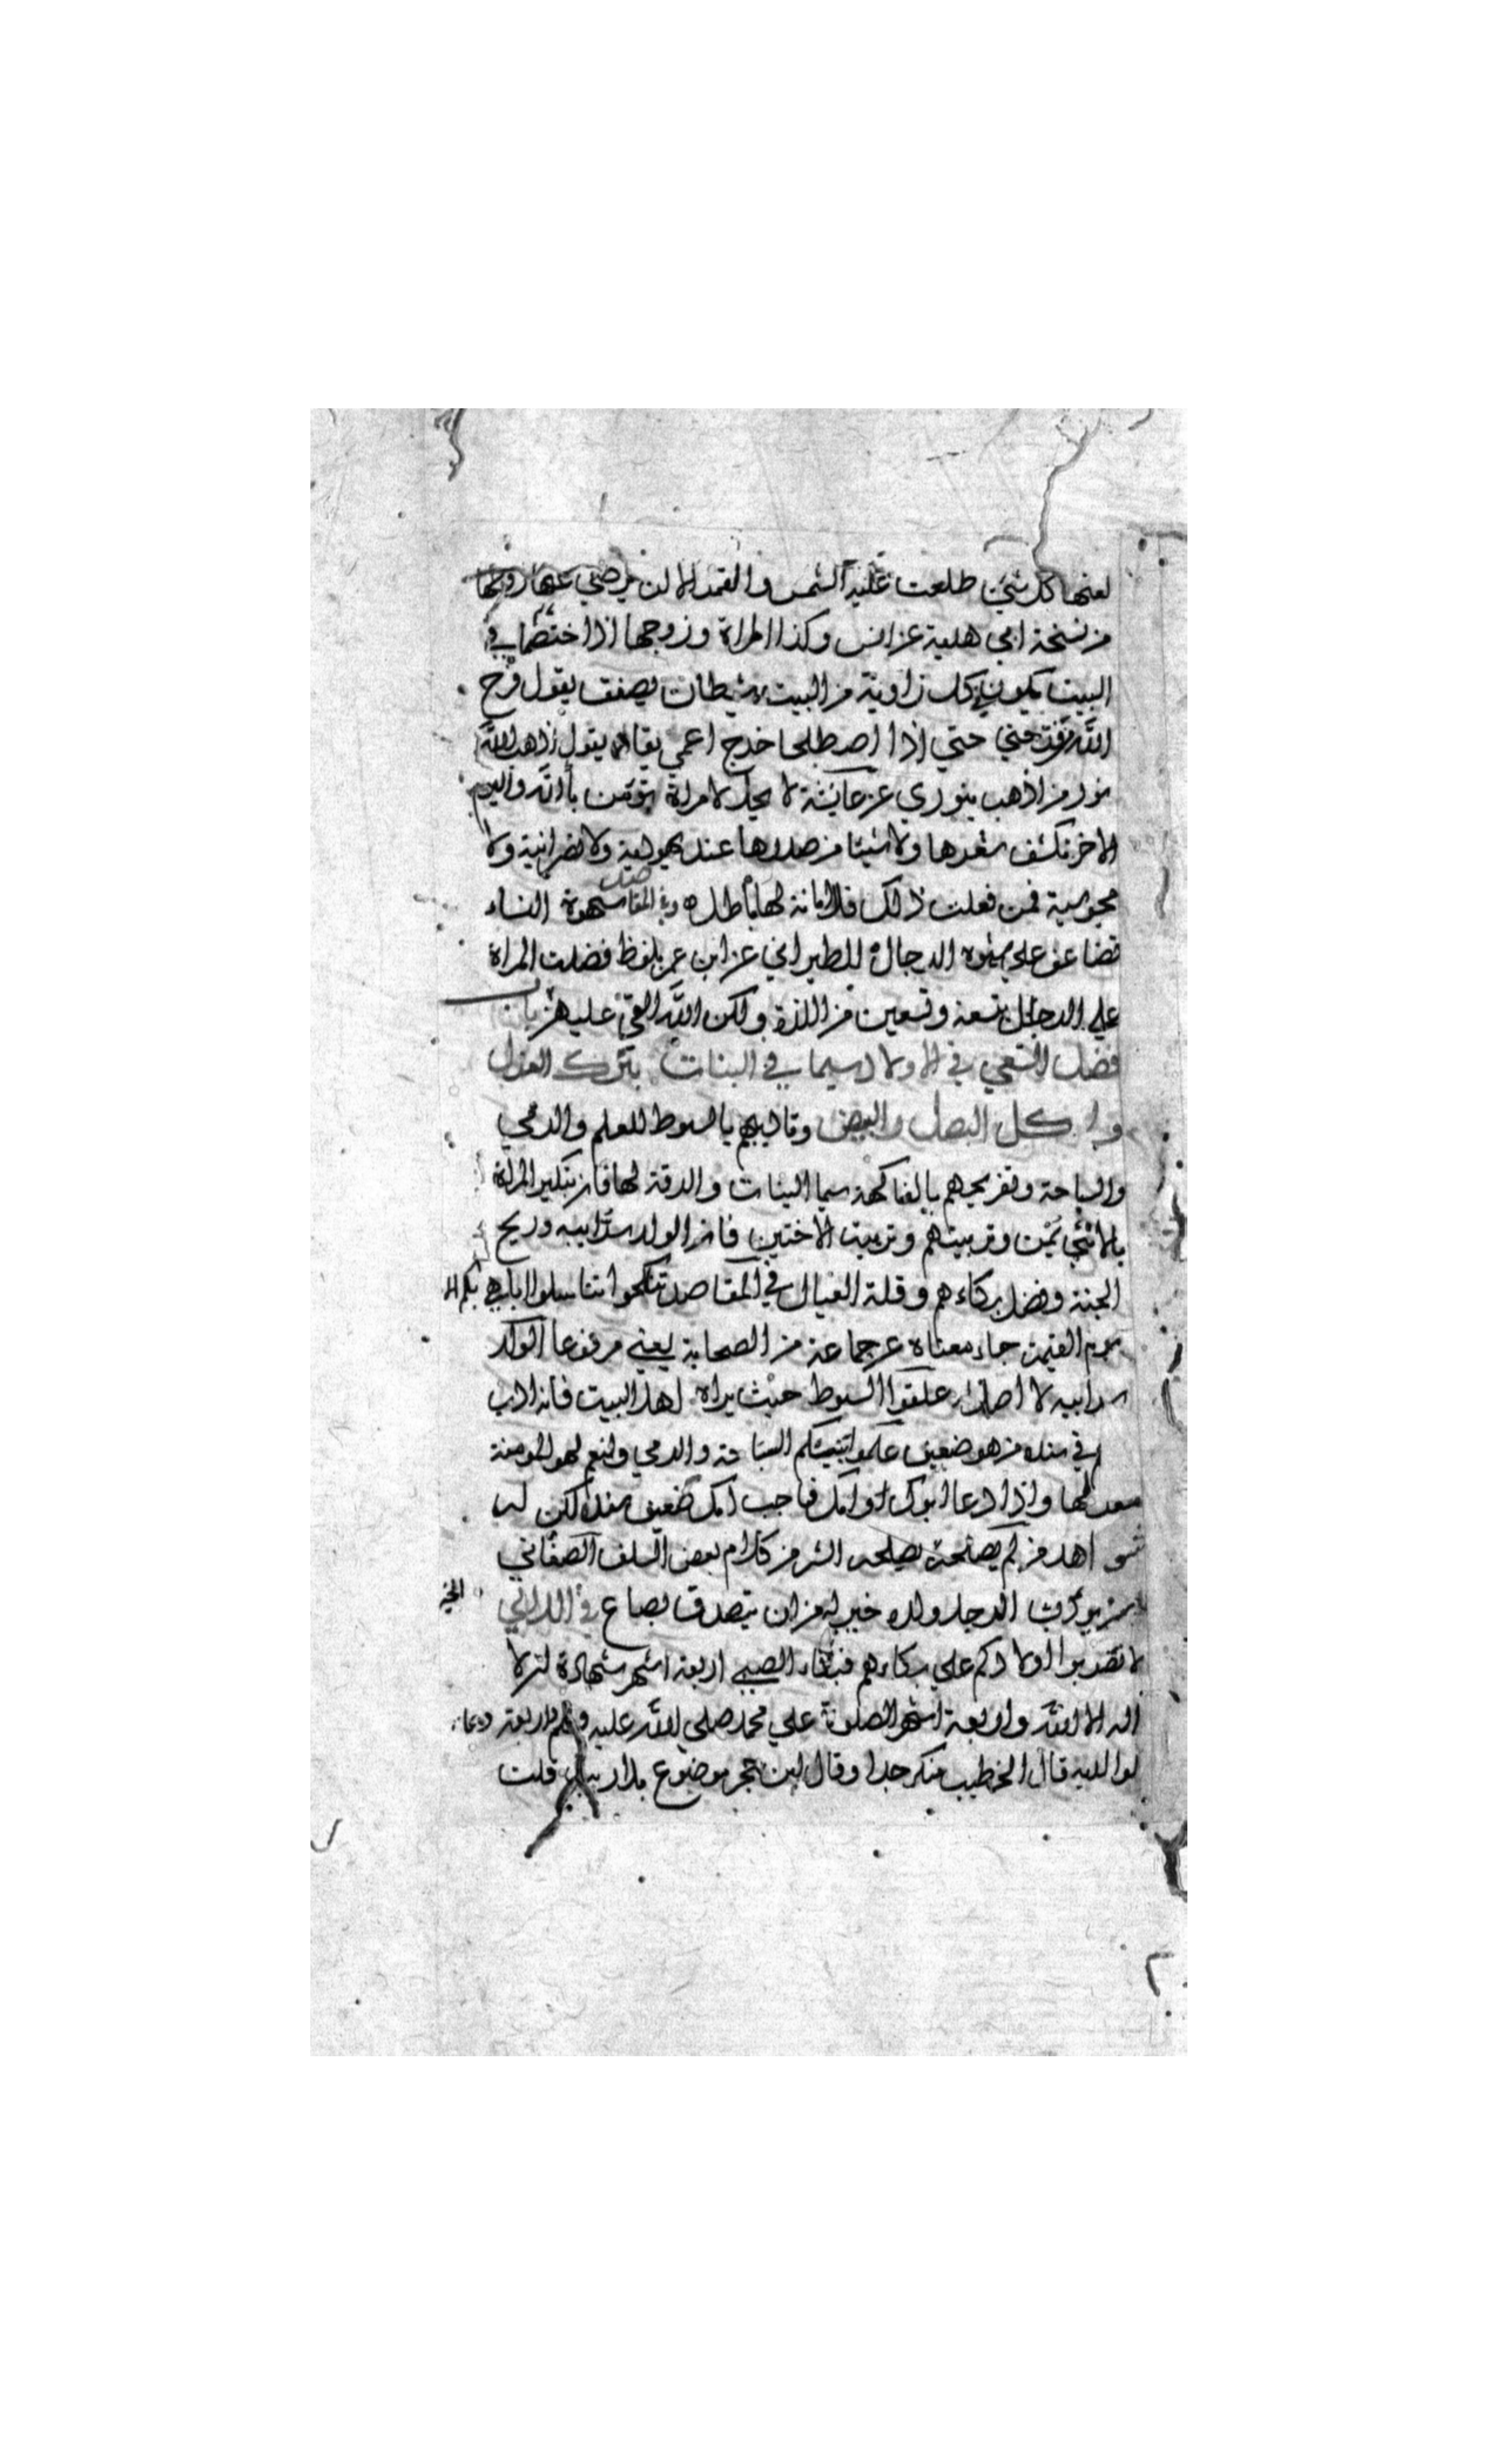 لعنها كل شئ طلعت عليه الشمس والقمر الا ان يرضي عنها زوجها
من نسخة ابي هدبة عن انس وكذا المراة وزوجها اذا اختصما في
البيت يكون في كل زاوية من البيت شيطان يصفق يقول فرح
الله من فرحني حتي اذا اصطلحا خرج اعمي يقاد يقول اذهب الله
نور من اذهب بنوري عن عائشة لا يحل لامراة تؤمن بالله واليوم
الاخر تكشف شعرها ولا شيئا من صدرها عند يهودية ولا نصرانية ولا
مجوسية فمن فعلت ذلك فلا امانة لها باطل وفي المقاصد شهوة النساء
تضاعف علي شهوة الرجال للطبراني عن ابن عمر بلفظ فضلت المراة
علي الرجل بتسعة وتسعين من اللذة ولكن الله القي عليهن
فضل السعي في الاولاد سيما في البنات بترك العزل
واكل البصل والبيض وتاديبهم بالسوط للعلم والرمي
والسباحة وتفريحهم بالفاكهة سيما البنات والرقة لها فان تبكير المراة
بالانثي يمن وتربيتهم وتربية الاختين فان الولد سر ابيه وريح
الجنة وفضل بكاءهم وقلة العيال في المقاصد تناكحوا تناسلوا اباهي بكم الامم
يوم القيمة جاء معناه عن جماعة من الصحابة يعني مرفوعا الولد
سر ابيه لا اصل له علقوا السوط حيث يراه اهل البيت فانه ادب
في سنده من هو ضعيف علموا بنيكم السباحة والرمي ولنعم لهو المومنة
مغزلها واذا دعا ابوك وامك فاجب امك ضعيف سنده لكن له
شواهد من لم يصلحه يصلحه الشر من كلام بعض السلف الصغاني
يؤدب الرجل ولده خير له من ان يتصدق بصاع في اللآلي
لا تضربوا اولادكم علي بكاءهم فبكاء الصبي اربعة اشهر شهادة ان لا
اله الا الله واربعة اشهر الصلوة علي محمد صلي الله عليه وسلم واربعة دعاء
لوالديه قال الخطيب منكر جدا وقال ابن حجر موضوع بلا ريب قلت